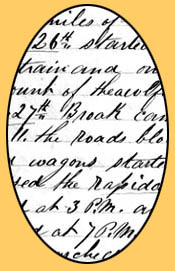 miles of
26th started
train and on
ount of the awolf
27th Broak cam
ll. the roads blo
wagons starte
sed the rapida
d at 3 P.M. a
d at 7 P.M.